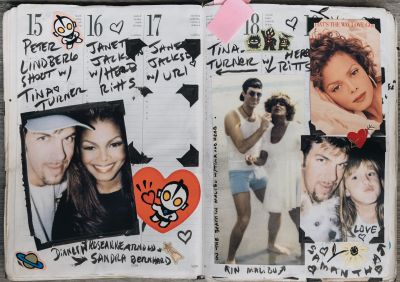 15
16
17
PETER
LINDBERG
SHOOT W/
TINA
TURNER
JANET
JACK
W/ HERB
RITTS
JANET
JACKSON
W/ URI
DINNER W/ ROSEANNE ARNOLD
SANDRA BERNHARD
18
TINA
TURNER
W/ HERB
RITTS
THAT'S THE WAY LOVE GOES
IN MALIBU
LOVE
SAMANTHA